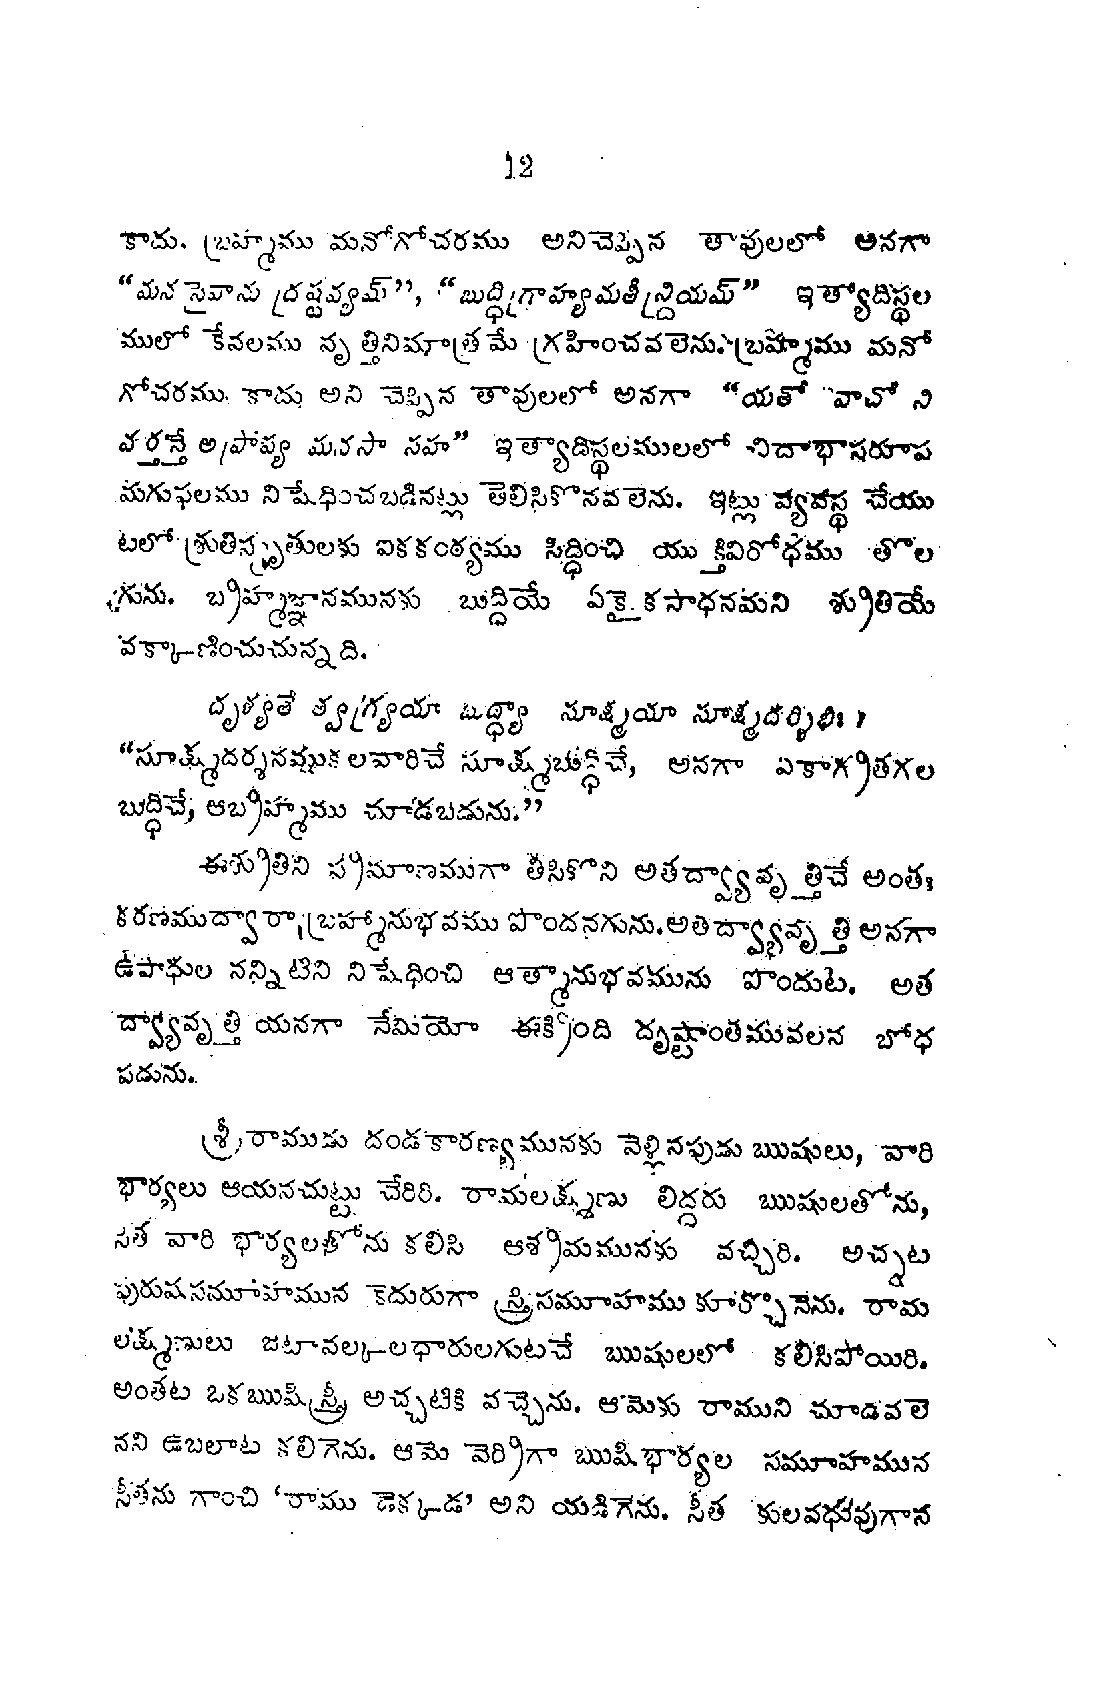 12
కాదు. బ్రహ్మము మనోగోచరము అనిచెప్పిన తావులలో అనగా
“మన సైవాను ద్రష్టవ్యమ్”, “బుద్ధిగ్రాహ్యమతీన్ద్రియమ్” ఇత్యాదిస్థల
ములో కేవలము వృత్తినిమాత్రమే గ్రహించవలెను. బ్రహ్మము మనో
గోచరము కాదు అని చెప్పిన తావులలో అనగా “యతో వాచో ని
వర్తన్తే అప్రాప్య మనసా సహ” ఇత్యాదిస్థలములలో చిదాభాసరూప
మగుఫలము నిషేధించబడినట్లు తెలిసికొనవలెను. ఇట్లు వ్యవస్థ చేయు
టలో శ్రుతిస్మృతులకు ఐకకంఠ్యము సిద్ధించి యుక్తివిరోధము తొల
గును. బ్రహ్మజ్ఞానమునకు బుద్ధియే ఏకైకసాధనమని శ్రుతియే
వక్కాణించుచున్నది.
దృశ్యతే త్వగ్ర్యయా బుద్ధ్యా సూక్ష్మయా సూక్ష్మదర్శిభిః ।
“సూక్ష్మదర్శనముకలవారిచే సూక్ష్మబుద్ధిచే, అనగా ఏకాగ్రతగల
బుద్ధిచే, ఆబ్రహ్మము చూడబడును.”
ఈశ్రుతిని ప్రమాణముగా తీసికొని అతద్వ్యావృత్తిచే అంతః
కరణముద్వారా బ్రహ్మానుభవము పొందనగును. అతద్వ్యావృత్తి అనగా
ఉపాధుల నన్నిటిని నిషేధించి ఆత్మానుభవమును పొందుట. అత
ద్వ్యావృత్తి యనగా నేమియో ఈక్రింది దృష్టాంతమువలన బోధ
పడును.
శ్రీరాముడు దండకారణ్యమునకు వెళ్లినపుడు ఋషులు, వారి
భార్యలు ఆయనచుట్టు చేరిరి. రామలక్ష్మణు లిద్దరు ఋషులతోను,
సీత వారి భార్యలతోను కలిసి ఆశ్రమమునకు వచ్చిరి. అచ్చట
పురుషసమూహమున కెదురుగా స్త్రీసమూహము కూర్చొనెను. రామ
లక్ష్మణులు జటావల్కలధారులగుటచే ఋషులలో కలిసిపోయిరి.
అంతట ఒకఋషిస్త్రీ అచ్చటికి వచ్చెను. ఆమెకు రాముని చూడవలె
నని ఉబలాట కలిగెను. ఆమె వెర్రిగా ఋషిభార్యల సమూహమున
సీతను గాంచి ‘రాము డెక్కడ’ అని యడిగెను. సీత కులవధువుగాన